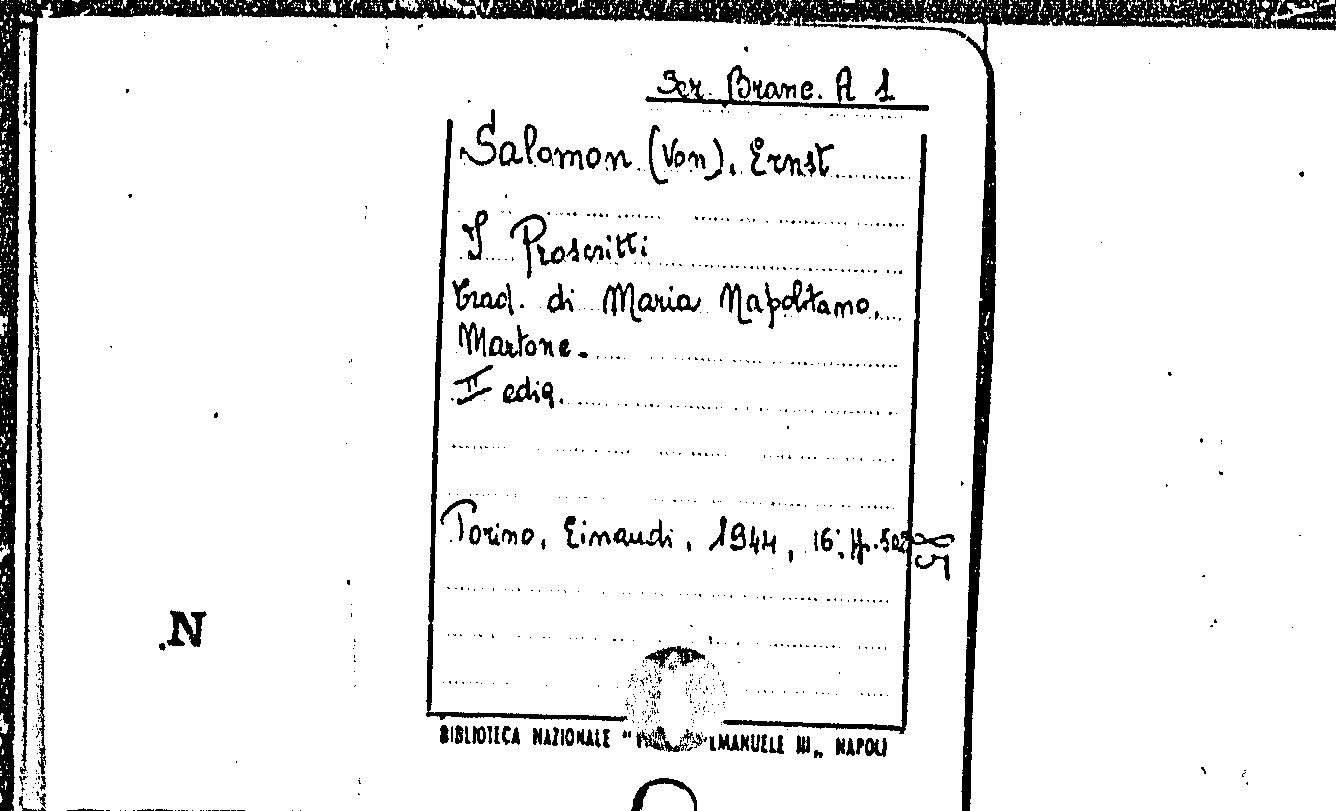 Ser. Branc. A 1
Salomon (Von), Ernst
I Proscritti
Trad. di Maria Napolitano,
Martone.
II ediz.
Torino, Einaudi, 1944, 16°, pp. 502
85
N.
BIBLIOTECA NAZIONALE " EMANUELE III„ NAPOLI